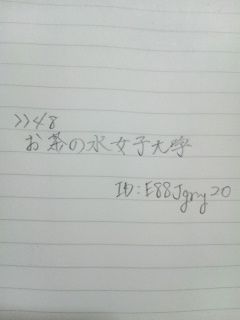 >>48
お茶の水女子大学
ID:E88Jgny20